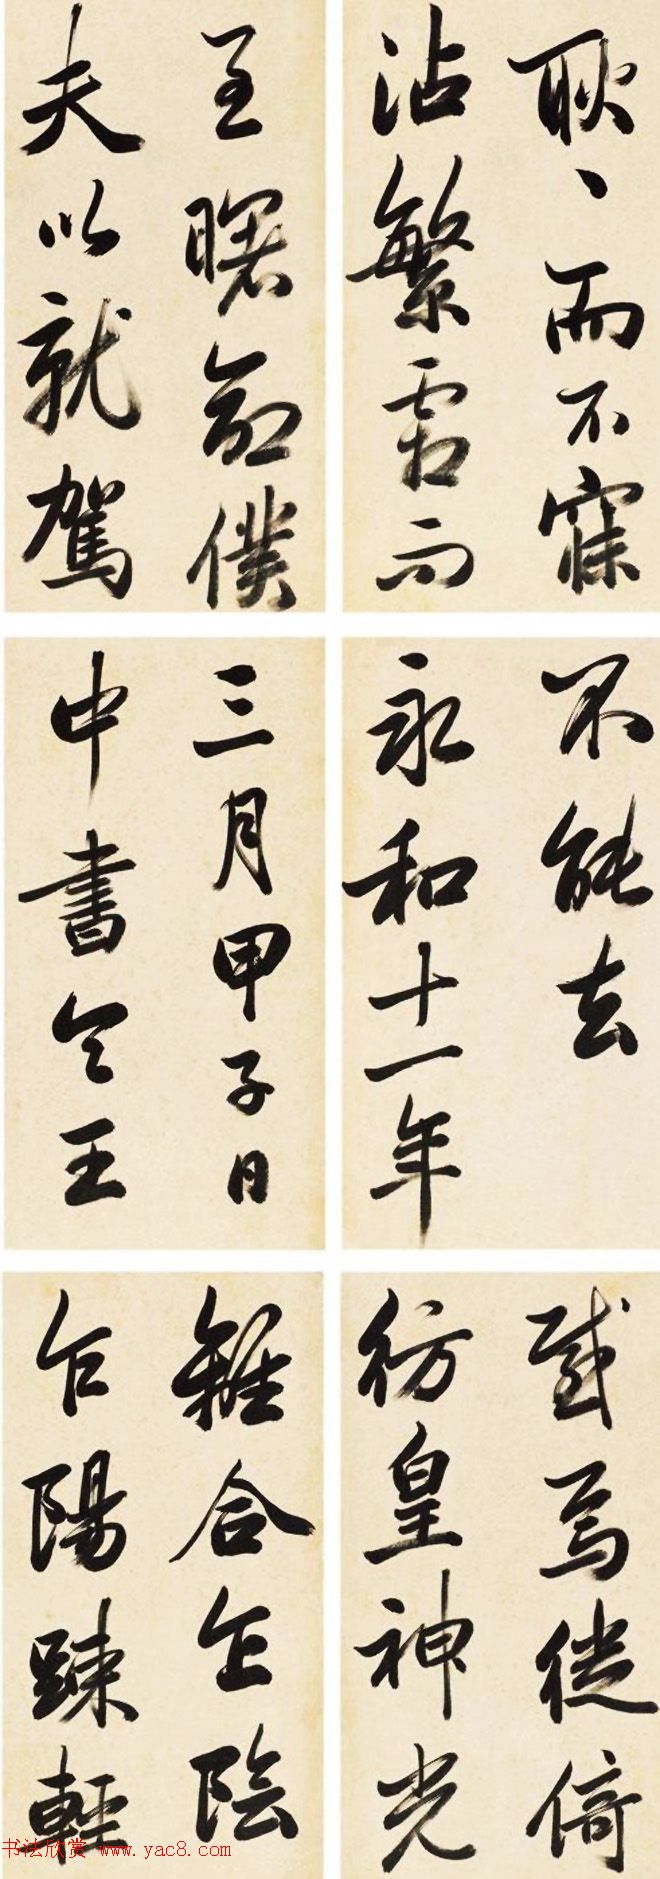 耿、而不寐
沾繁霜而
至曙命僕
夫以就駕
不能去
永和十一年
三月甲子日
中書令王
感焉徙倚
彷皇神光
離合乍陰
乍陽竦輕
书法欣赏 www.yac8.com